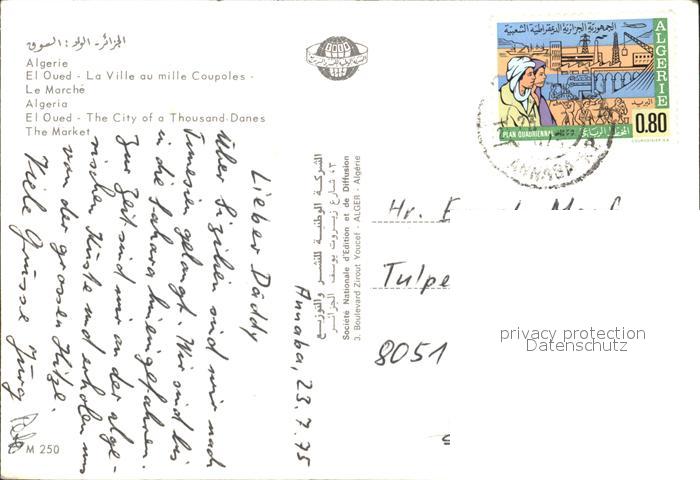 الجزائر- الواد : السوق
Algerie
El Oued - La Ville au mille Coupoles -
Le Marché
Algeria
El Oued - The City of a Thousand Danes
The Market
Annaba, 23.7.75
Lieber Daddy
Über Sizilien sind wir nach
Tunesien gelangt. Wir sind bis
in die Sahara hineingefahren.
Zur Zeit sind wir an der alge-
rischen Küste und erholen uns
von der grossen Hitze.
Viele Grüsse Jürg
M 250
الشركة الوطنية للنشر والتوزيع
٣ شارع زيروت يوسف الجزائر
Société Nationale d'Edition et de Diffusion
3, Boulevard Zirout Youcef - ALGER - Algérie
الجمهورية الجزائرية الديمقراطية الشعبية
ALGERIE
البريد
0.80
PLAN QUADRIENNAL
المخطط الرباعي
COURVOISIER S.A.
ANNABA
Hr.
Tulpe
8051
privacy protection
Datenschutz